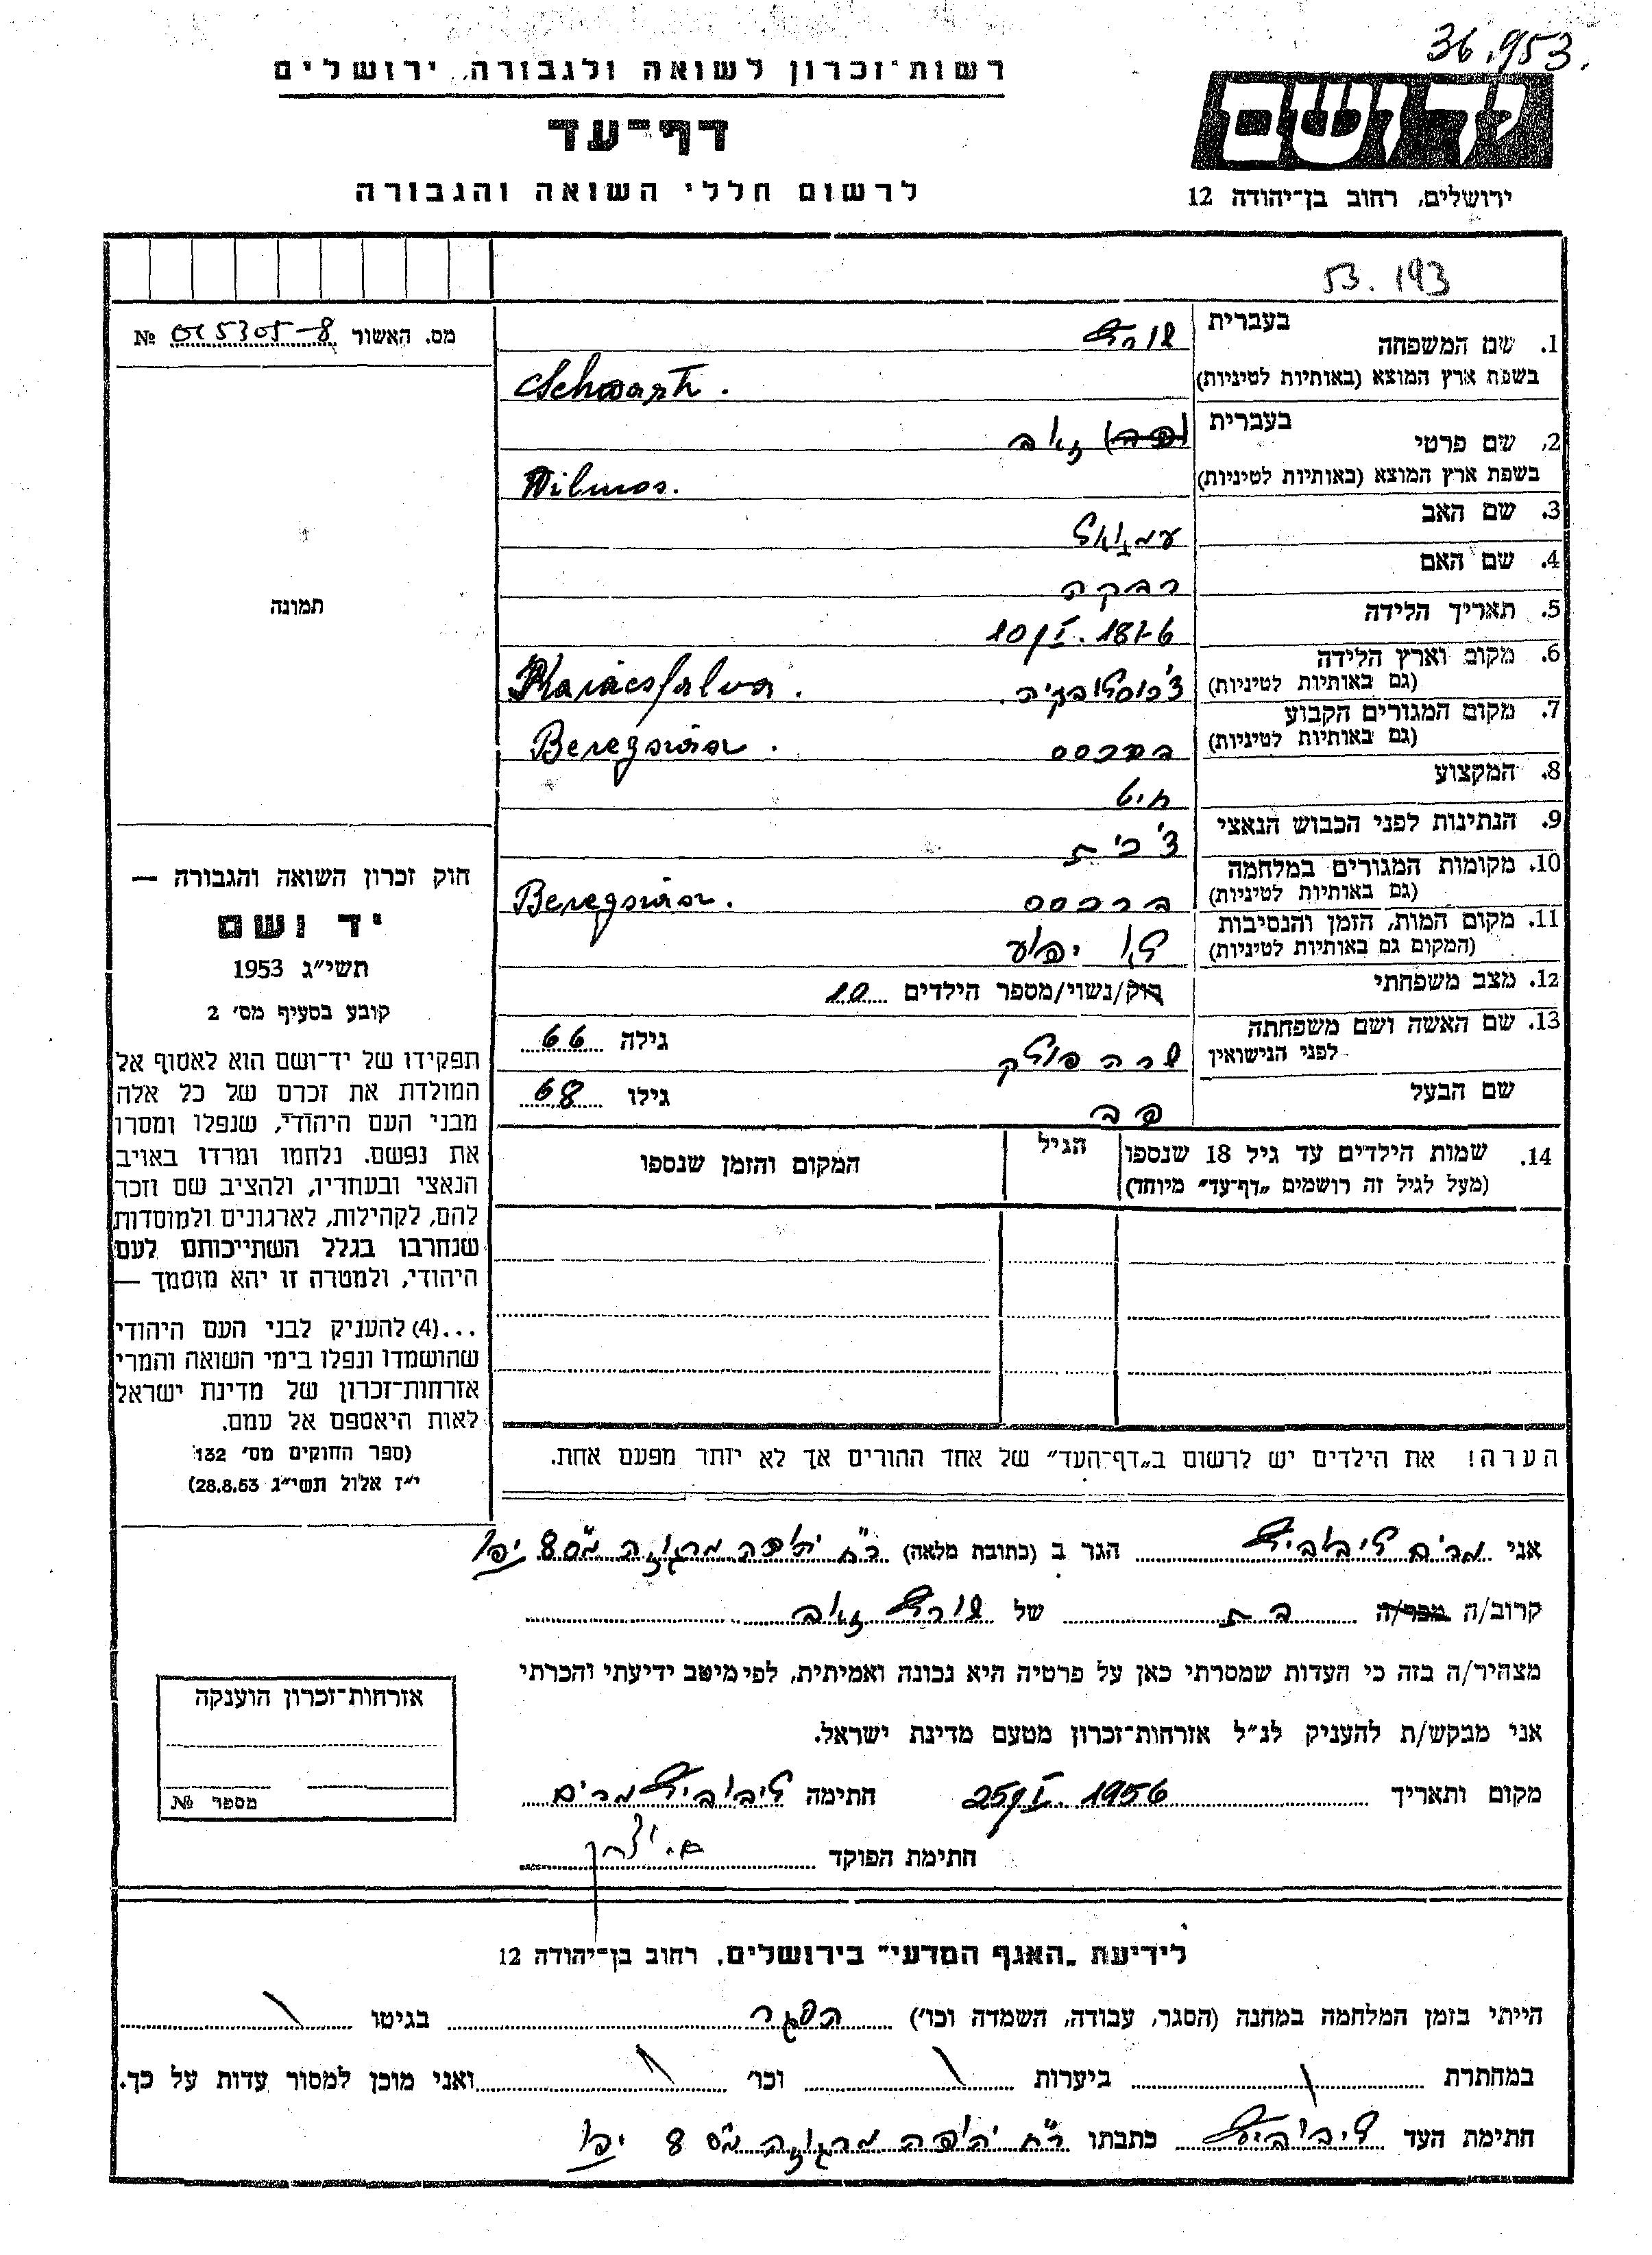 36.953.
רשות־זכרון לשואה ולגבורה, ירושלים
יד ושם
דף־עד
לרשום חללי השואה והגבורה
ירושלים, רחוב בן־יהודה 12
53.193
מס. האשור № 015305-8
1. שם המשפחה בעברית שורץ
בשפת ארץ המוצא (באותיות לטיניות) Schwartz.
2. שם פרטי בעברית זאב
בשפת ארץ המוצא (באותיות לטיניות) Vilmos.
3. שם האב עמנואל
4. שם האם רבקה
5. תאריך הלידה 10/I. 1876
6. מקום וארץ הלידה (גם באותיות לטיניות) צ'כוסלובקיה. Karácsfalva.
7. מקום המגורים הקבוע (גם באותיות לטיניות) Beregszász.
8. המקצוע חיט
9. הנתינות לפני הכבוש הנאצי צ'כית
10. מקומות המגורים במלחמה (גם באותיות לטיניות) ברכסס Beregszász.
11. מקום המות, הזמן והנסיבות (המקום גם באותיות לטיניות) לא ידוע
12. מצב משפחתי רוק/נשוי/מספר הילדים 10
13. שם האשה ושם משפחתה לפני הנישואין שרה פולק גילה 66
שם הבעל גילו 68
14. שמות הילדים עד גיל 18 שנספו (מעל לגיל זה רושמים „דף־עד" מיוחד) הגיל המקום והזמן שנספו
תמונה
חוק זכרון השואה והגבורה —
יד ושם
תשי״ג 1953
קובע בסעיף מס׳ 2
תפקידו של יד־ושם הוא לאסוף אל
המולדת את זכרם של כל אלה
מבני העם היהודי, שנפלו ומסרו
את נפשם, נלחמו ומרדו באויב
הנאצי ובעוזריו, ולהציב שם וזכר
להם, לקהילות, לארגונים ולמוסדות
שנחרבו בגלל השתייכותם לעם
היהודי, ולמטרה זו יהא מוסמך —
...(4) להעניק לבני העם היהודי
שהושמדו ונפלו בימי השואה והמרי
אזרחות־זכרון של מדינת ישראל
לאות היאספם אל עמם.
(ספר החוקים מס׳ 132
י״ז אלול תשי״ג 28.8.53)
הערה! את הילדים יש לרשום ב„דף־העד" של אחד ההורים אך לא יותר מפעם אחת.
אני מרים ליבוביץ הגר ב (כתובת מלאה) רח' יהודה מרגוזה מס 8 יפו
קרוב/ה מכר/ה בת של שורץ זאב
מצהיר/ה בזה כי העדות שמסרתי כאן על פרטיה היא נכונה ואמיתית, לפי מיטב ידיעתי והכרתי
אני מבקש/ת להעניק לנ״ל אזרחות־זכרון מטעם מדינת ישראל.
מקום ותאריך 25/I. 1956 חתימה ליבוביץ מרים
חתימת הפוקד
אזרחות־זכרון הוענקה
מספר №
לידיעת „האגף המדעי" בירושלים, רחוב בן־יהודה 12
הייתי בזמן המלחמה במחנה (הסגר, עבודה, השמדה וכו') הסגר בגיטו
במחתרת ביערות וכו׳ ואני מוכן למסור עדות על כך.
חתימת העד ליבוביץ כתבתו רח' יהודה מרגוזה מס 8 יפו